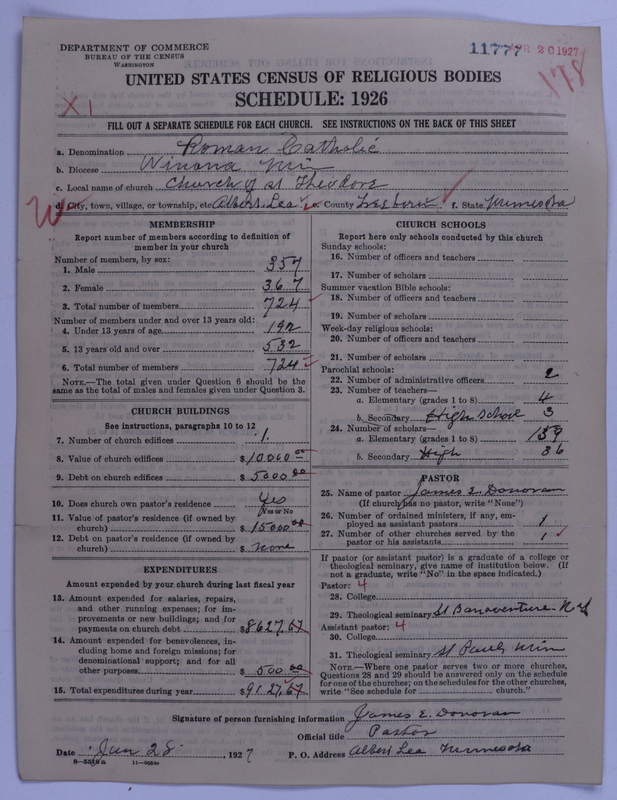 DEPARTMENT OF COMMERCE
BUREAU OF THE CENSUS
WASHINGTON
11777 APR 20 1927
178
UNITED STATES CENSUS OF RELIGIOUS BODIES
SCHEDULE: 1926
X1
FILL OUT A SEPARATE SCHEDULE FOR EACH CHURCH. SEE INSTRUCTIONS ON THE BACK OF THIS SHEET
a. Denomination Roman Catholic
b. Diocese Winona Min
c. Local name of church Church of St Theodore
d. City, town, village, or township, etc. Albert Lea e. County Freeborn f. State Minnesota
MEMBERSHIP
Report number of members according to definition of member in your church
Number of members, by sex:
1. Male 357
2. Female 367
3. Total number of members 724
Number of members under and over 13 years old:
4. Under 13 years of age 192
5. 13 years old and over 532
6. Total number of members 724
NOTE.—The total given under Question 6 should be the same as the total of males and females given under Question 3.
CHURCH BUILDINGS
See instructions, paragraphs 10 to 12
7. Number of church edifices 1
8. Value of church edifices $10000 00
9. Debt on church edifices $5000 00
10. Does church own pastor's residence Yes
Yes or No
11. Value of pastor's residence (if owned by church) $15000 00
12. Debt on pastor's residence (if owned by church) $ None
EXPENDITURES
Amount expended by your church during last fiscal year
13. Amount expended for salaries, repairs, and other running expenses; for improvements or new buildings; and for payments on church debt $8627.67
14. Amount expended for benevolences, including home and foreign missions; for denominational support; and for all other purposes $500 00
15. Total expenditures during year $9127.67
CHURCH SCHOOLS
Report here only schools conducted by this church
Sunday schools:
16. Number of officers and teachers
17. Number of scholars
Summer vacation Bible schools:
18. Number of officers and teachers
19. Number of scholars
Week-day religious schools:
20. Number of officers and teachers
21. Number of scholars
Parochial schools:
22. Number of administrative officers 2
23. Number of teachers—
a. Elementary (grades 1 to 8) 4
b. Secondary High School 3
24. Number of scholars—
a. Elementary (grades 1 to 8) 159
b. Secondary High 36
PASTOR
25. Name of pastor James E. Donovan
(If church has no pastor, write "None")
26. Number of ordained ministers, if any, employed as assistant pastors 1
27. Number of other churches served by the pastor or his assistants 1
If pastor (or assistant pastor) is a graduate of a college or theological seminary, give name of institution below. (If not a graduate, write "No" in the space indicated.)
Pastor: 4
28. College
29. Theological seminary St Bonaventure N.Y
Assistant pastor: 4
30. College
31. Theological seminary St Pauls Minn
NOTE.—Where one pastor serves two or more churches, Questions 28 and 29 should be answered only on the schedule for one of the churches; on the schedules for the other churches, write "See schedule for church."
Signature of person furnishing information James E. Donovan
Official title Pastor
Date Jan 28, 1927 P. O. Address Albert Lea Minnesota
8—5518a 11—9664a